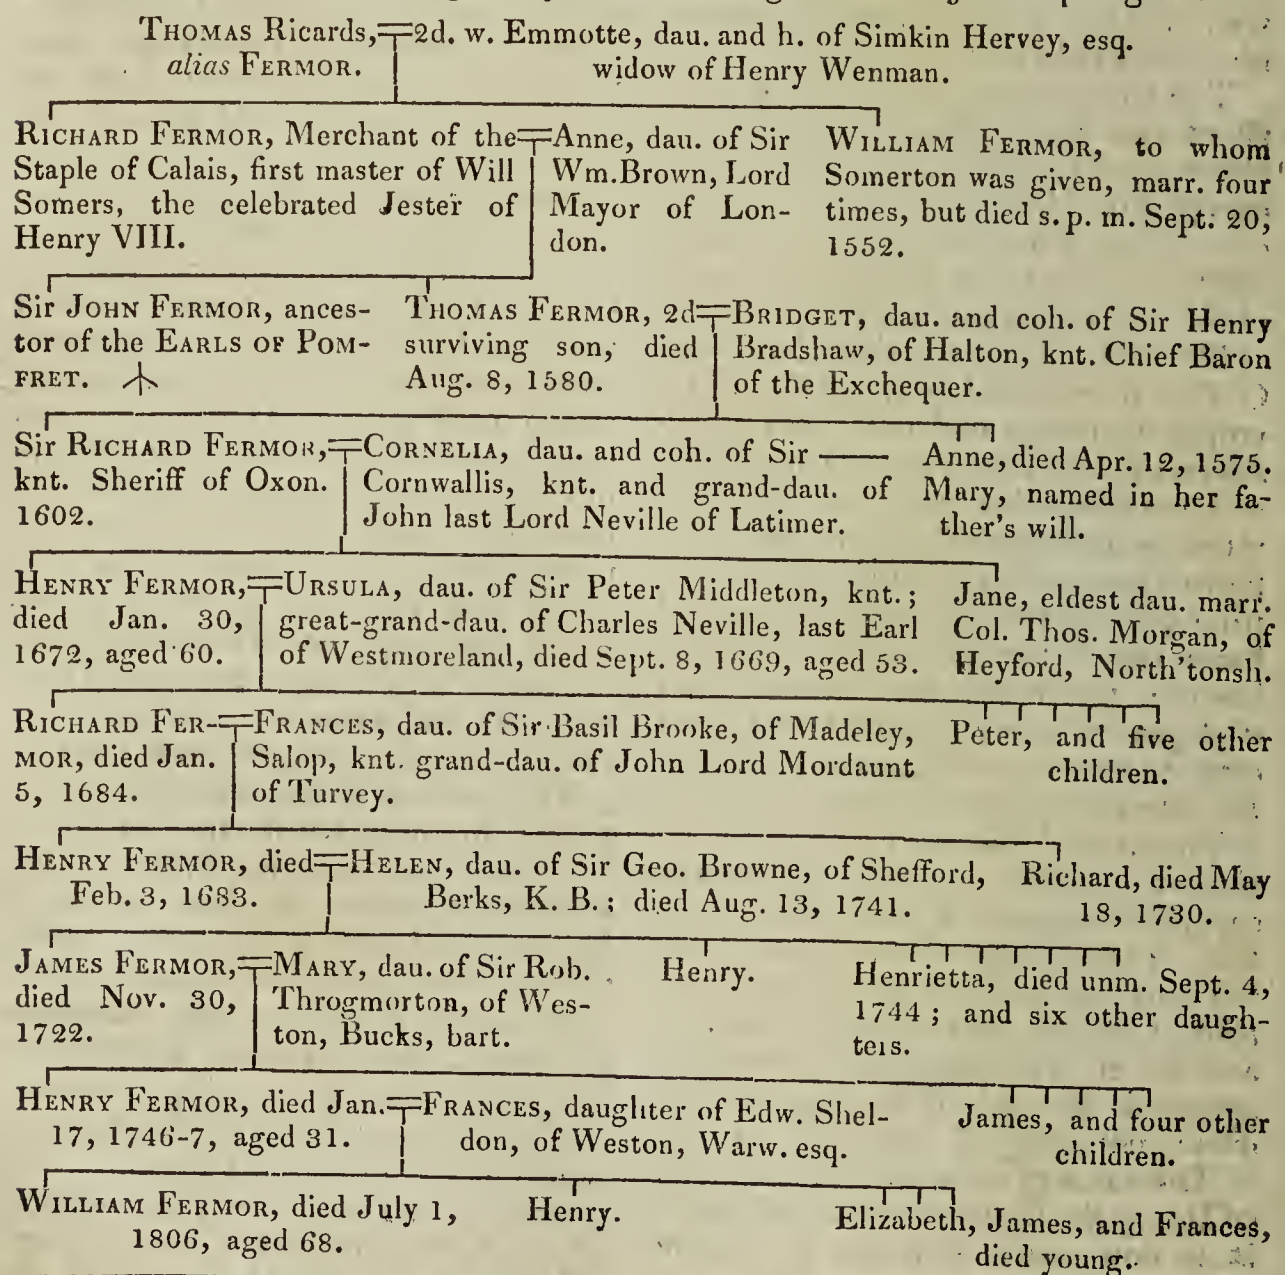 THOMAS Ricards, 2d. w. Emmotte, dau. and h. of Simkin Hervey, esq.
alias FERMOR. widow of Henry Wenman.
RICHARD FERMOR, Merchant of the
Staple of Calais, first master of Will
Somers, the celebrated Jester of
Henry VIII.
Anne, dau. of Sir
Wm. Brown, Lord
Mayor of Lon-
don.
WILLIAM FERMOR, to whom
Somerton was given, marr. four
times, but died s. p. m. Sept. 20,
1552.
Sir JOHN FERMOR, ances-
tor of the EARLS OF POM-
FRET.
THOMAS FERMOR, 2d
surviving son, died
Aug. 8, 1580.
BRIDGET, dau. and coh. of Sir Henry
Bradshaw, of Halton, knt. Chief Baron
of the Exchequer.
Sir RICHARD FERMOR,
knt. Sheriff of Oxon.
1602.
CORNELIA, dau. and coh. of Sir ——
Cornwallis, knt. and grand-dau. of
John last Lord Neville of Latimer.
Anne, died Apr. 12, 1575.
Mary, named in her fa-
ther's will.
HENRY FERMOR,
died Jan. 30,
1672, aged 60.
URSULA, dau. of Sir Peter Middleton, knt.;
great-grand-dau. of Charles Neville, last Earl
of Westmoreland, died Sept. 8, 1669, aged 53.
Jane, eldest dau. marr.
Col. Thos. Morgan, of
Heyford, North'tonsh.
RICHARD FER-
MOR, died Jan.
5, 1684.
FRANCES, dau. of Sir Basil Brooke, of Madeley,
Salop, knt. grand-dau. of John Lord Mordaunt
of Turvey.
Peter, and five other
children.
HENRY FERMOR, died
Feb. 3, 1683.
HELEN, dau. of Sir Geo. Browne, of Shefford,
Berks, K. B.; died Aug. 13, 1741.
Richard, died May
18, 1730.
JAMES FERMOR,
died Nov. 30,
1722.
MARY, dau. of Sir Rob.
Throgmorton, of Wes-
ton, Bucks, bart.
Henry.
Henrietta, died unm. Sept. 4,
1744; and six other daugh-
ters.
HENRY FERMOR, died Jan.
17, 1746-7, aged 31.
FRANCES, daughter of Edw. Shel-
don, of Weston, Warw. esq.
James, and four other
children.
WILLIAM FERMOR, died July 1,
1806, aged 68.
Henry.
Elizabeth, James, and Frances,
died young.